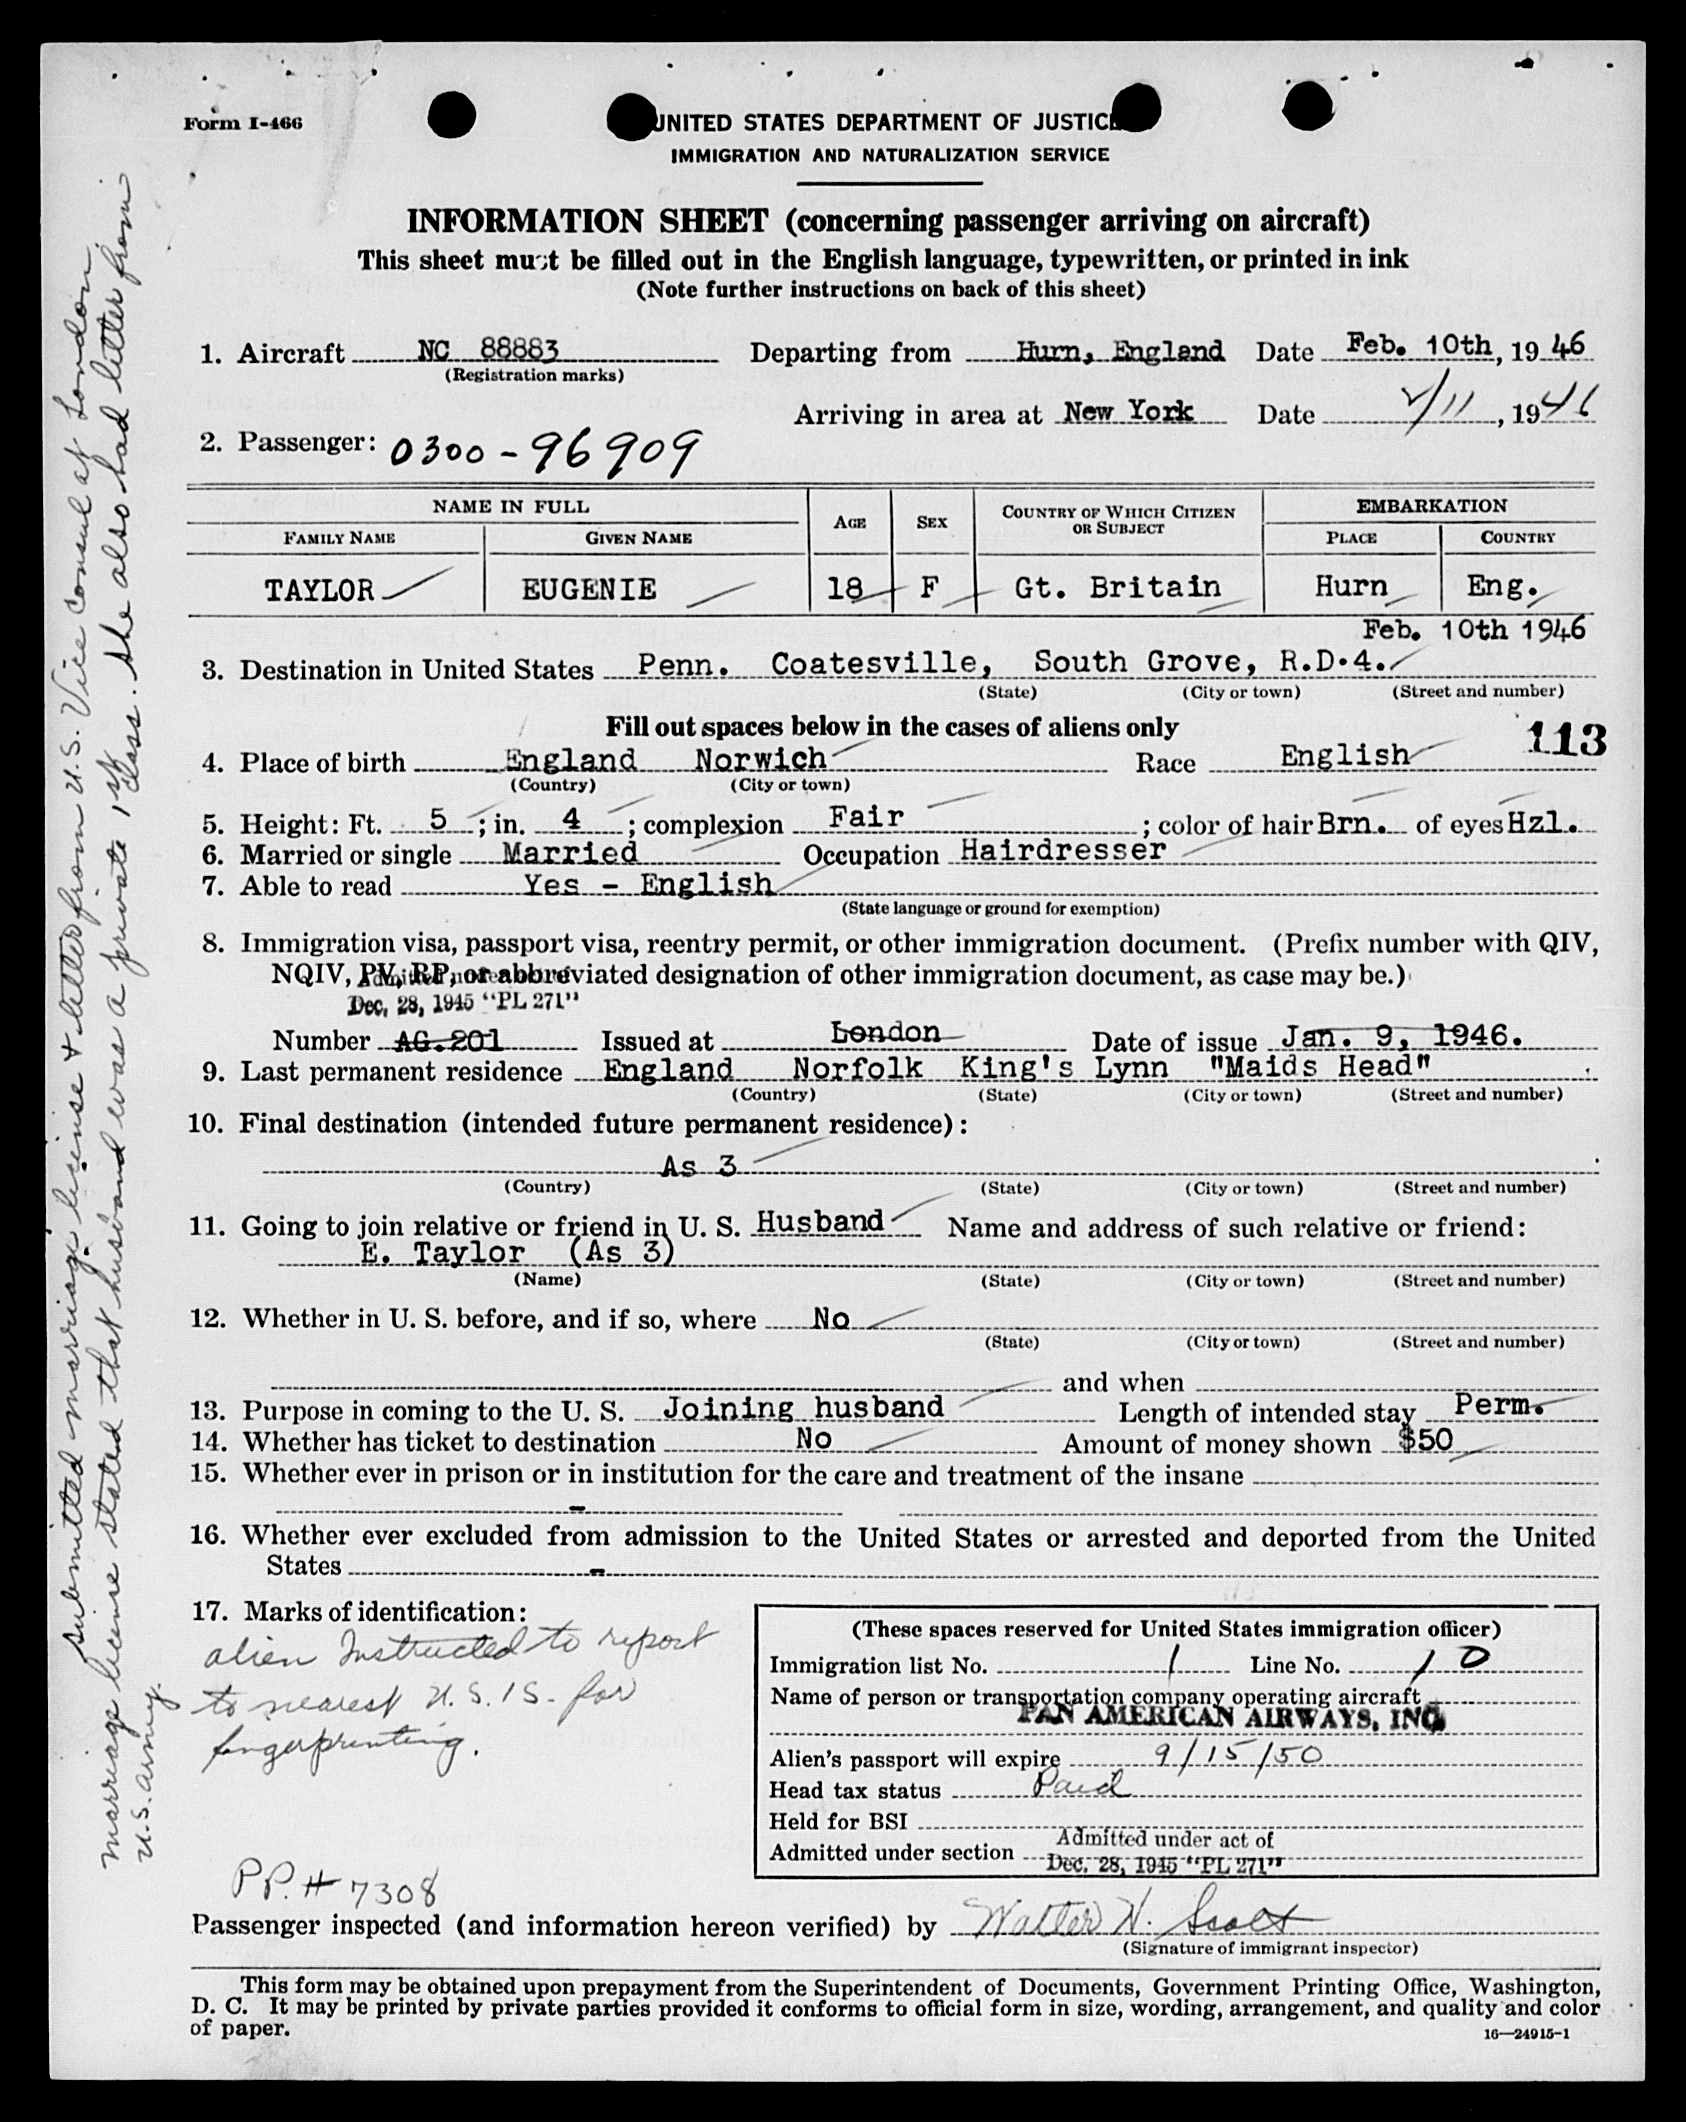 Form I-466
UNITED STATES DEPARTMENT OF JUSTICE
IMMIGRATION AND NATURALIZATION SERVICE
INFORMATION SHEET (concerning passenger arriving on aircraft)
This sheet must be filled out in the English language, typewritten, or printed in ink
(Note further instructions on back of this sheet)
1. Aircraft NC 88883 Departing from Hurn, England Date Feb. 10th, 1946
(Registration marks)
Arriving in area at New York Date 2/11, 1946
2. Passenger: 0300-96909
NAME IN FULL AGE SEX COUNTRY OF WHICH CITIZEN OR SUBJECT EMBARKATION
FAMILY NAME GIVEN NAME PLACE COUNTRY
TAYLOR EUGENIE 18 F Gt. Britain Hurn Eng.
Feb. 10th 1946
3. Destination in United States Penn. Coatesville, South Grove, R.D.4.
(State) (City or town) (Street and number)
Fill out spaces below in the cases of aliens only
113
4. Place of birth England Norwich Race English
(Country) (City or town)
5. Height: Ft. 5; in. 4; complexion Fair; color of hair Brn. of eyes Hzl.
6. Married or single Married Occupation Hairdresser
7. Able to read Yes - English
(State language or ground for exemption)
8. Immigration visa, passport visa, reentry permit, or other immigration document. (Prefix number with QIV,
NQIV, PV, RP, or abbreviated designation of other immigration document, as case may be.)
Dec. 28, 1945 "PL 271"
Number AG.201 Issued at London Date of issue Jan. 9, 1946.
9. Last permanent residence England Norfolk King's Lynn "Maids Head"
(Country) (State) (City or town) (Street and number)
10. Final destination (intended future permanent residence):
As 3
(Country) (State) (City or town) (Street and number)
11. Going to join relative or friend in U. S. Husband Name and address of such relative or friend:
E. Taylor (As 3)
(Name) (State) (City or town) (Street and number)
12. Whether in U. S. before, and if so, where No
(State) (City or town) (Street and number)
and when
13. Purpose in coming to the U. S. Joining husband Length of intended stay Perm.
14. Whether has ticket to destination No Amount of money shown $50
15. Whether ever in prison or in institution for the care and treatment of the insane
-
16. Whether ever excluded from admission to the United States or arrested and deported from the United
States -
17. Marks of identification:
alien Instructed to report
to nearest U.S.I.S. for
fingerprinting.
(These spaces reserved for United States immigration officer)
Immigration list No. 1 Line No. 10
Name of person or transportation company operating aircraft
PAN AMERICAN AIRWAYS, INC.
Alien's passport will expire 9/15/50
Head tax status Paid
Held for BSI
Admitted under section Admitted under act of
Dec. 28, 1945 "PL 271"
PP. # 7308
Passenger inspected (and information hereon verified) by Walter W. Scott
(Signature of immigrant inspector)
This form may be obtained upon prepayment from the Superintendent of Documents, Government Printing Office, Washington,
D. C. It may be printed by private parties provided it conforms to official form in size, wording, arrangement, and quality and color
of paper.
16—24915-1
Submitted marriage license & letter from U.S. Vice Consul at London
marriage license stated that husband was a private 1st Class. She also had letter from
U.S. Army.